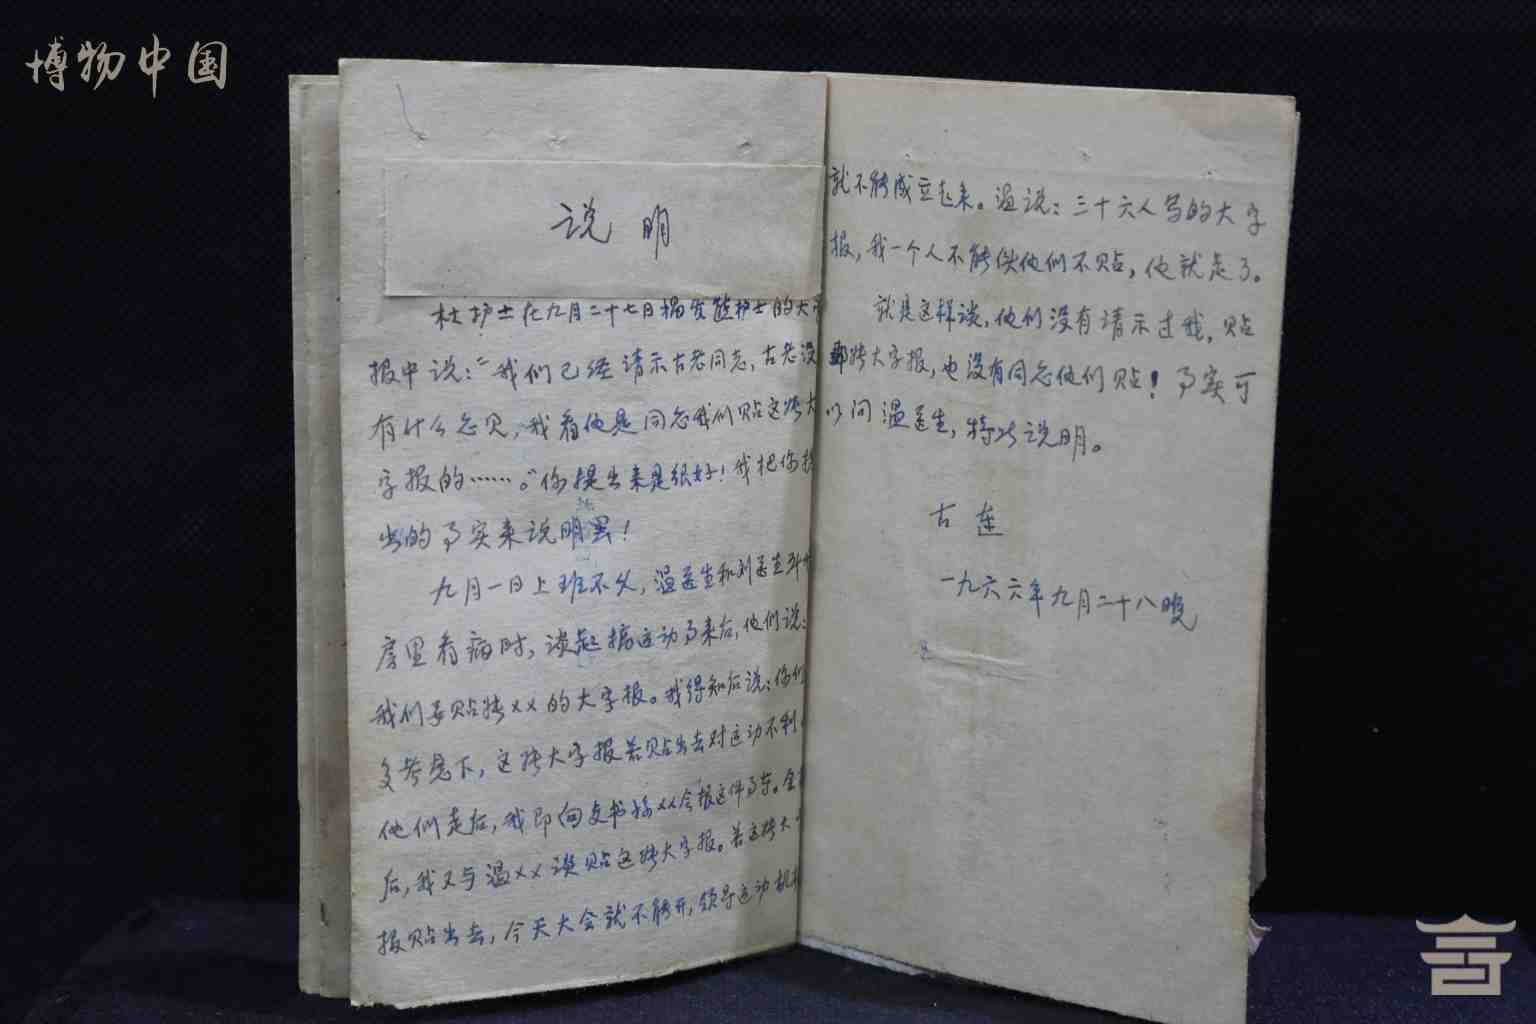 博物中国
说明
杜护士在九月二十七日揭发护士的大字
报中说:“我们已经请示古老同志,古老没
有什么意见,我看他是同意我们贴这张大
字报的……。”你提出来是很好!我把你提
出的事实来说明罢!
九月一日上班不久,温医生和刘医生到
房里看病时,谈起搞运动事来后,他们说:
我们要贴张××的大字报。我得知后说:你们
多考虑下,这张大字报若贴出去对运动不利
他们走后,我即向支书××会报这件事。
后,我又与温××谈贴这张大字报。若这张大字
报贴出去,今天大会就不能开,领导运动机
就不能成立起来。温说:三十六人写的大字
报,我一个人不能使他们不贴,他就走了。
就是这样谈,他们没有请示过我,贴
那张大字报,也没有同意他们贴!事实可
以问温医生,特此说明。
古莲
一九六六年九月二十八晚